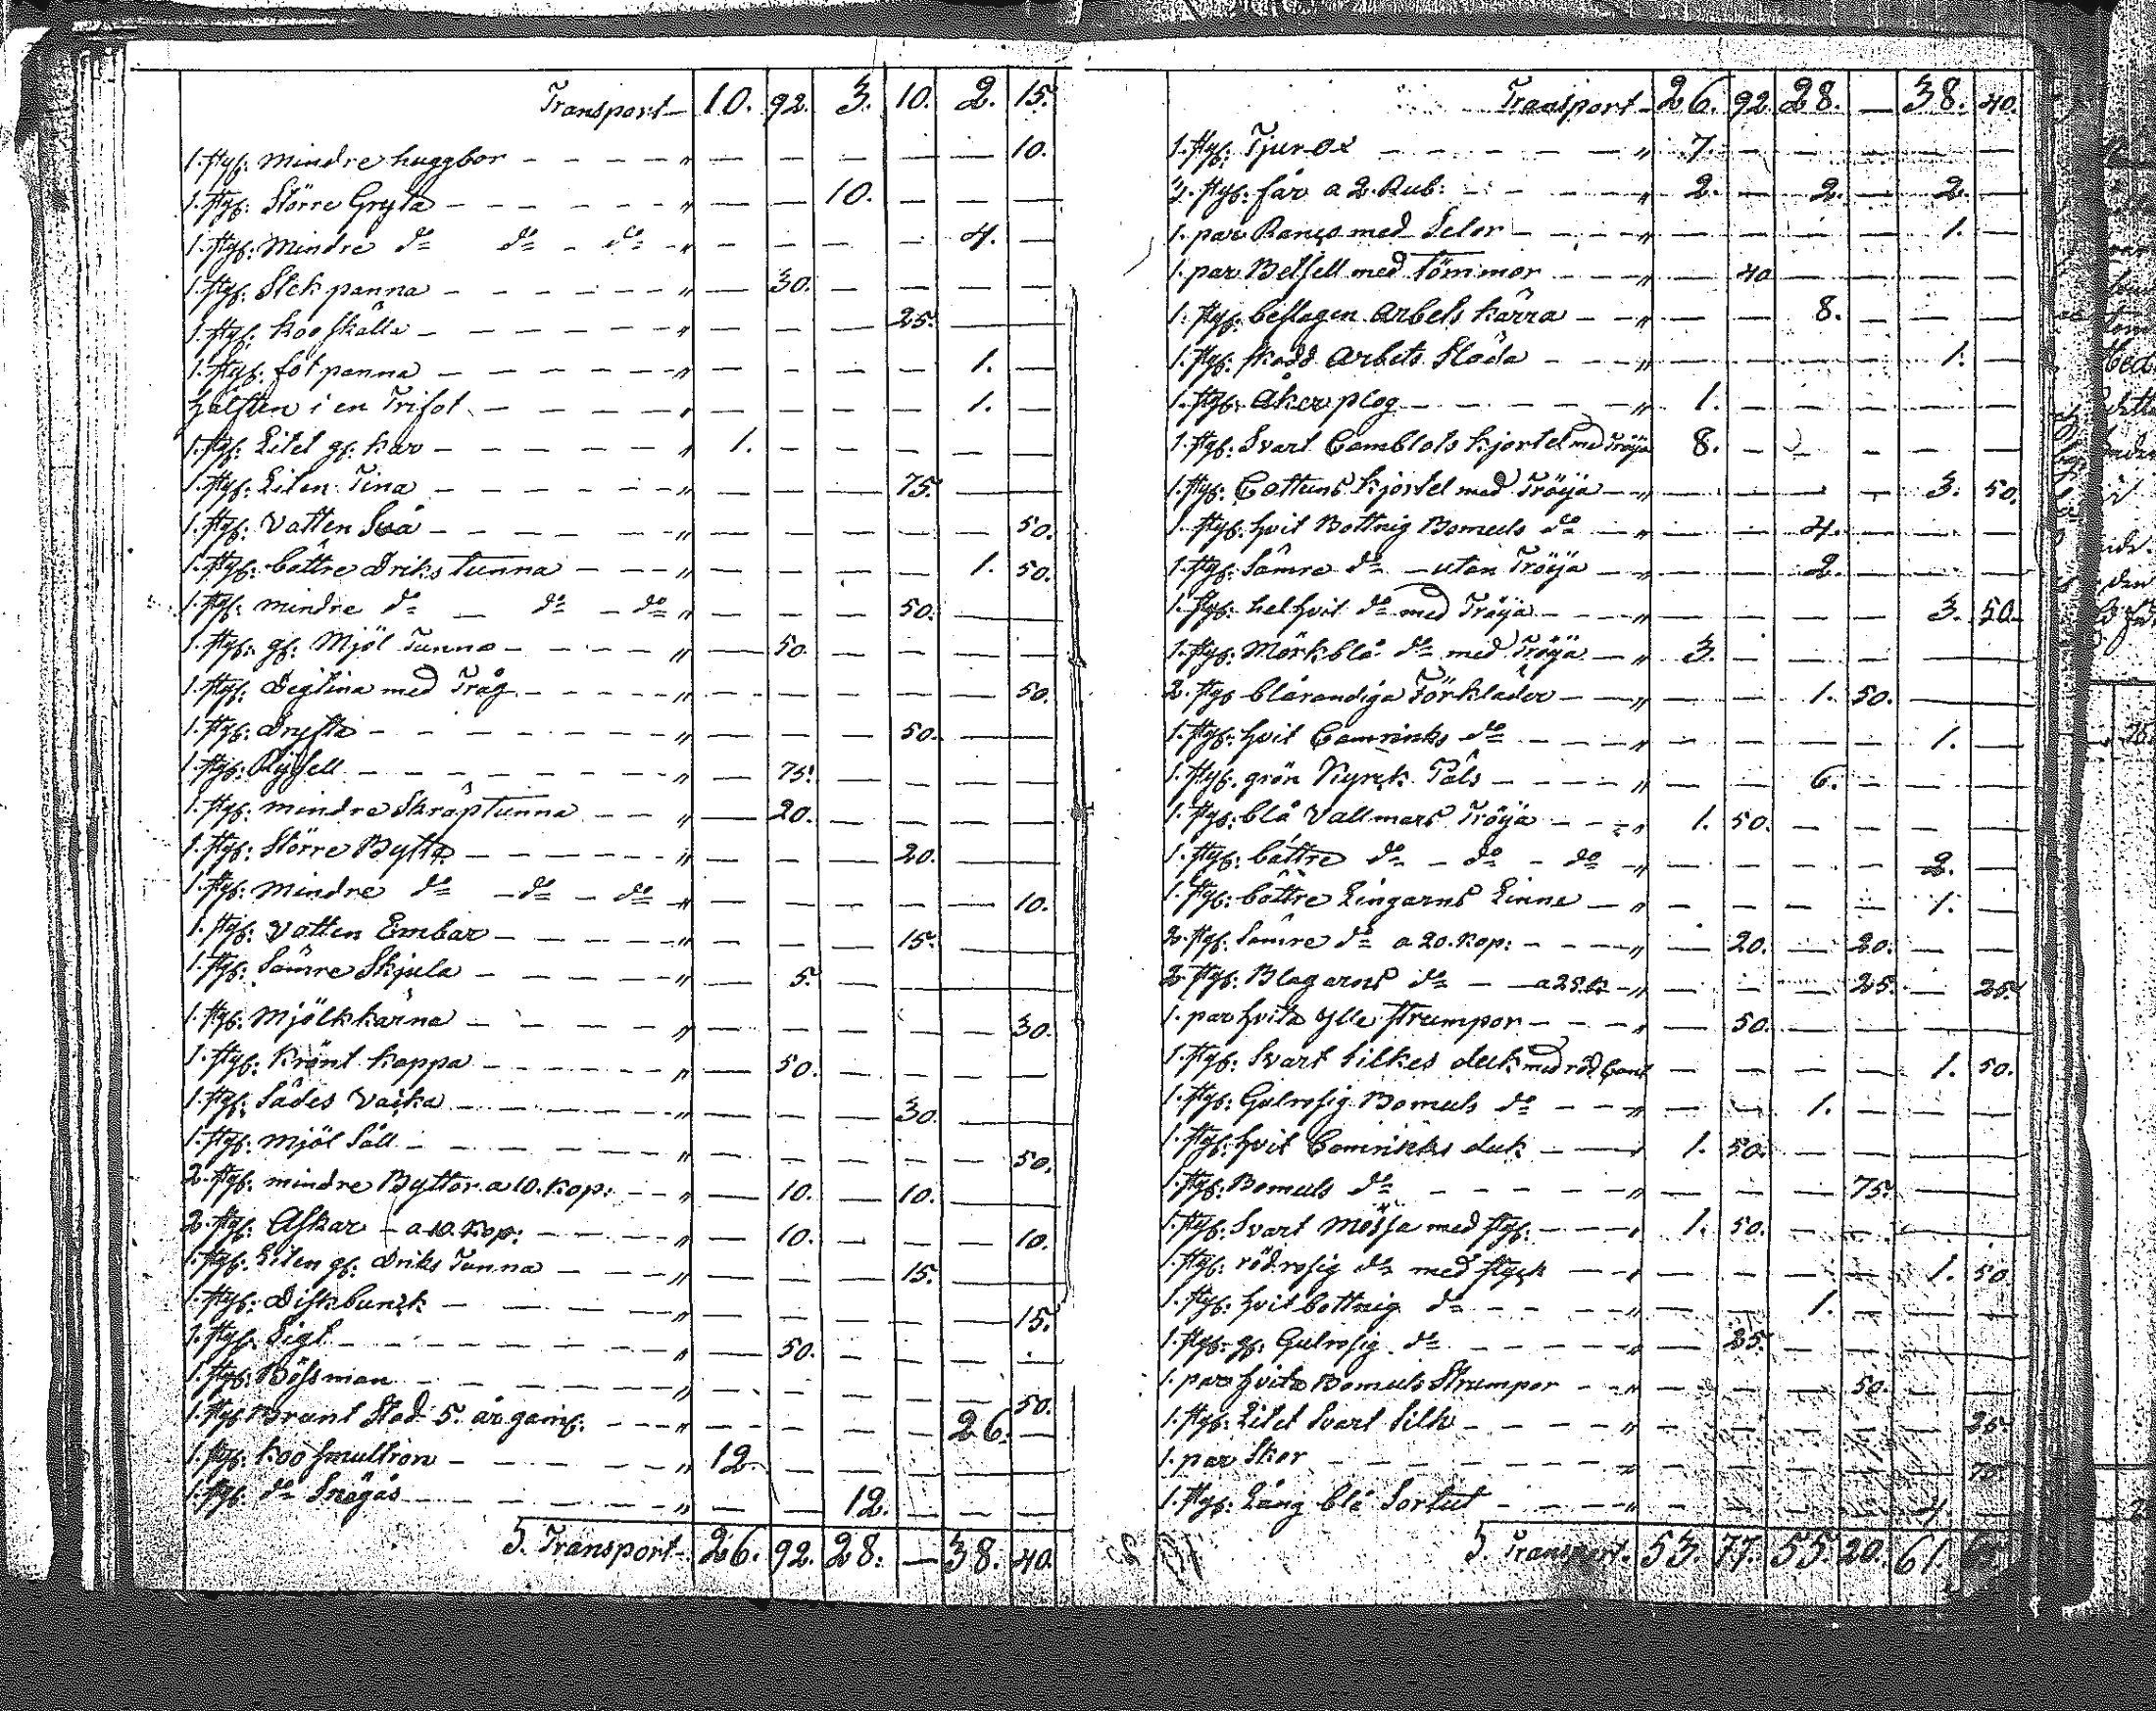 Transport 10. 92. 3. 10. 2. 15.
1. styf: mindre huggbor - - - „ — — — — — 10.
1. styf: Större Gryta - - - „ — — 10. — — —
1. styf: Mindre do do - do - „ — — — — 4. —
1. styf: Stekpanna - - - „ — 30. — — — —
1. styf: Koo skälla - - - „ — — — 25. — —
1. styf: fot panna - - - „ — — — — 1. —
Hälften i en Trifot - - - „ — — — — 1. —
1. styf: Litet gf: kar - - - „ 1. — — — — —
1. styf: Liten Tina - - - „ — — — 75. — —
1. styf: Vatten Såå - - - „ — — — — — 50.
1. styf: bättre Driks tunna - - - „ — — — — 1. 50.
1. styf: mindre do - do - do „ — — — 50. — —
1. styf: gf: Mjöl Tunna - - - „ — 50. — — — —
1. styf: Degtina med Tråg - - - „ — — — — — 50.
1. styf: Dryfta - - - „ — — — 50. — —
1. styf: Ryssell - - - „ — 75. — — — —
1. styf: mindre Skräptunna - - „ — 20. — — — —
1. styf: Större Bytta - - - „ — — — 20. — —
1. styf: mindre do - do - do - „ — — — — — 10.
1. styf: Vatten Embar - - - „ — — — 15. — —
1. styf: Sämre Skjula - - - „ — 5. — — — —
1. styf: Mjölkkärna - - - „ — — — — — 30.
1. styf: Krönt Kappa - - - „ — 50. — — — —
1. styf: Sädes Vacka - - - „ — — — 30. — —
1. styf: Mjöl Såll - - - „ — — — — — 50.
2. styf: mindre Byttor a 10. Kop: - - „ — 10. — 10. — —
2. styf: Askar - a 10. Kop: - - - „ — 10. — — — 10.
1. styf: Liten gf: Driks Tunna - - - „ — — — 15. — —
1. styf: Diskbunck - - - „ — — — — — 15.
1. styf: Sigt - - - „ — 50. — — — —
1. styf: Bössman - - - „ — — — — — 50.
1. styf: Brunt Stod 5. år gamf: - - - „ — — — — 26. —
1. styf: Koo smultron - - - „ 12. — — — — —
1. styf: do Snögås - - - „ — — 12. — — —
S. Transport 26. 92. 28. — 38. 40.
Transport 26. 92. 28. — 38. 40.
1. styf: Tjur-Ox - - - „ 7. — — — — —
3. styf: får a 2. Rub: - - - „ 2. — 2. — 2. —
1. par Rancs med Selor - - - „ — — — — 1. —
1. par Betsell med tömmor - - - „ — 40 — — — —
1. styf: beslagen Arbets kärra - - „ — — 8. — — —
1. styf: skodd Arbets Släda - - - „ — — — — 1. —
1. styf: Åker plog - - - „ 1. — — — — —
1. styf: Svart Camblots kjortel med Tröja 8. — — — — —
1. styf: Cottuns kjortel med Tröja - „ — — — — 3. 50.
1. styf: hvit Bottnig Bomuls do - „ — — 4. — — —
1. styf: Sämre do - utan Tröja - „ — — 2. — — —
1. styf: helhvit do med Tröja - - - „ — — — — 3. 50.
1. styf: Mörkblå do med Tröja - „ 3. — — — — —
2. styf blårandiga Förkläder - - „ — — 1. 50. — —
1. styf: hvit Camricks do - - - „ — — — — 1. —
1. styf: grön Kyrck Päls - - - „ — — 6. — — —
1. styf: blå Vallmars Tröja - - - „ 1. 50. — — — —
1. styf: bättre do - do - do „ — — — — 2. —
1. styf: bättre Lingarns Linne - „ — — — — 1. —
2. styf: Sämre do a 20. Kop: - - - „ — 20. — 20. — —
2. styf: Blagarns do - - a 25. K - „ — — — 25. — 25.
1. par hvita Ylle strumpor - - - „ — 50. — — — —
1. styf: Svart Silkes duk med röd Cant — — — — 1. 50.
1. styf: Gulrosig Bomuls do - - „ — — 1. — — —
1. styf: hvit Camricks duk - - „ 1. 50. — — — —
1. styf: Bomuls do - - - „ — — — 75. — —
1. styf: Svart Mössa med styf: - - - „ 1. 50. — — — —
1. styf: rödrosig do med styck - - „ — — — — 1. 50
1. styf: hvit bottnig do - - - „ — — 1. — — —
1. styf: gf: Gulrosig do - - - „ — 25. — — — —
1. par hvita Bomuls Strumpor - - „ — — — 50. — —
1. styf: Litet Svart Silke - - - „ — — — — — 25.
1. par Skor - - - „ — — — — — 75.
1. styf: Lång blå Sortut - - - „ — — — — 4. —
S. Transport. 53. 77. 55. 20. 61.